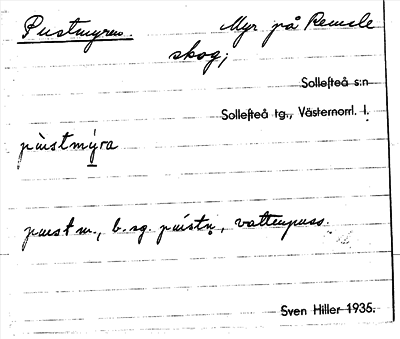 Pustmyren. Myr på Remsle
skog;
Sollefteå s:n
Sollefteå tg., Västernorrl. l.
pùistmýra
puist m., b. sg. púistṇ, vattenpuss.
Sven Hiller 1935.